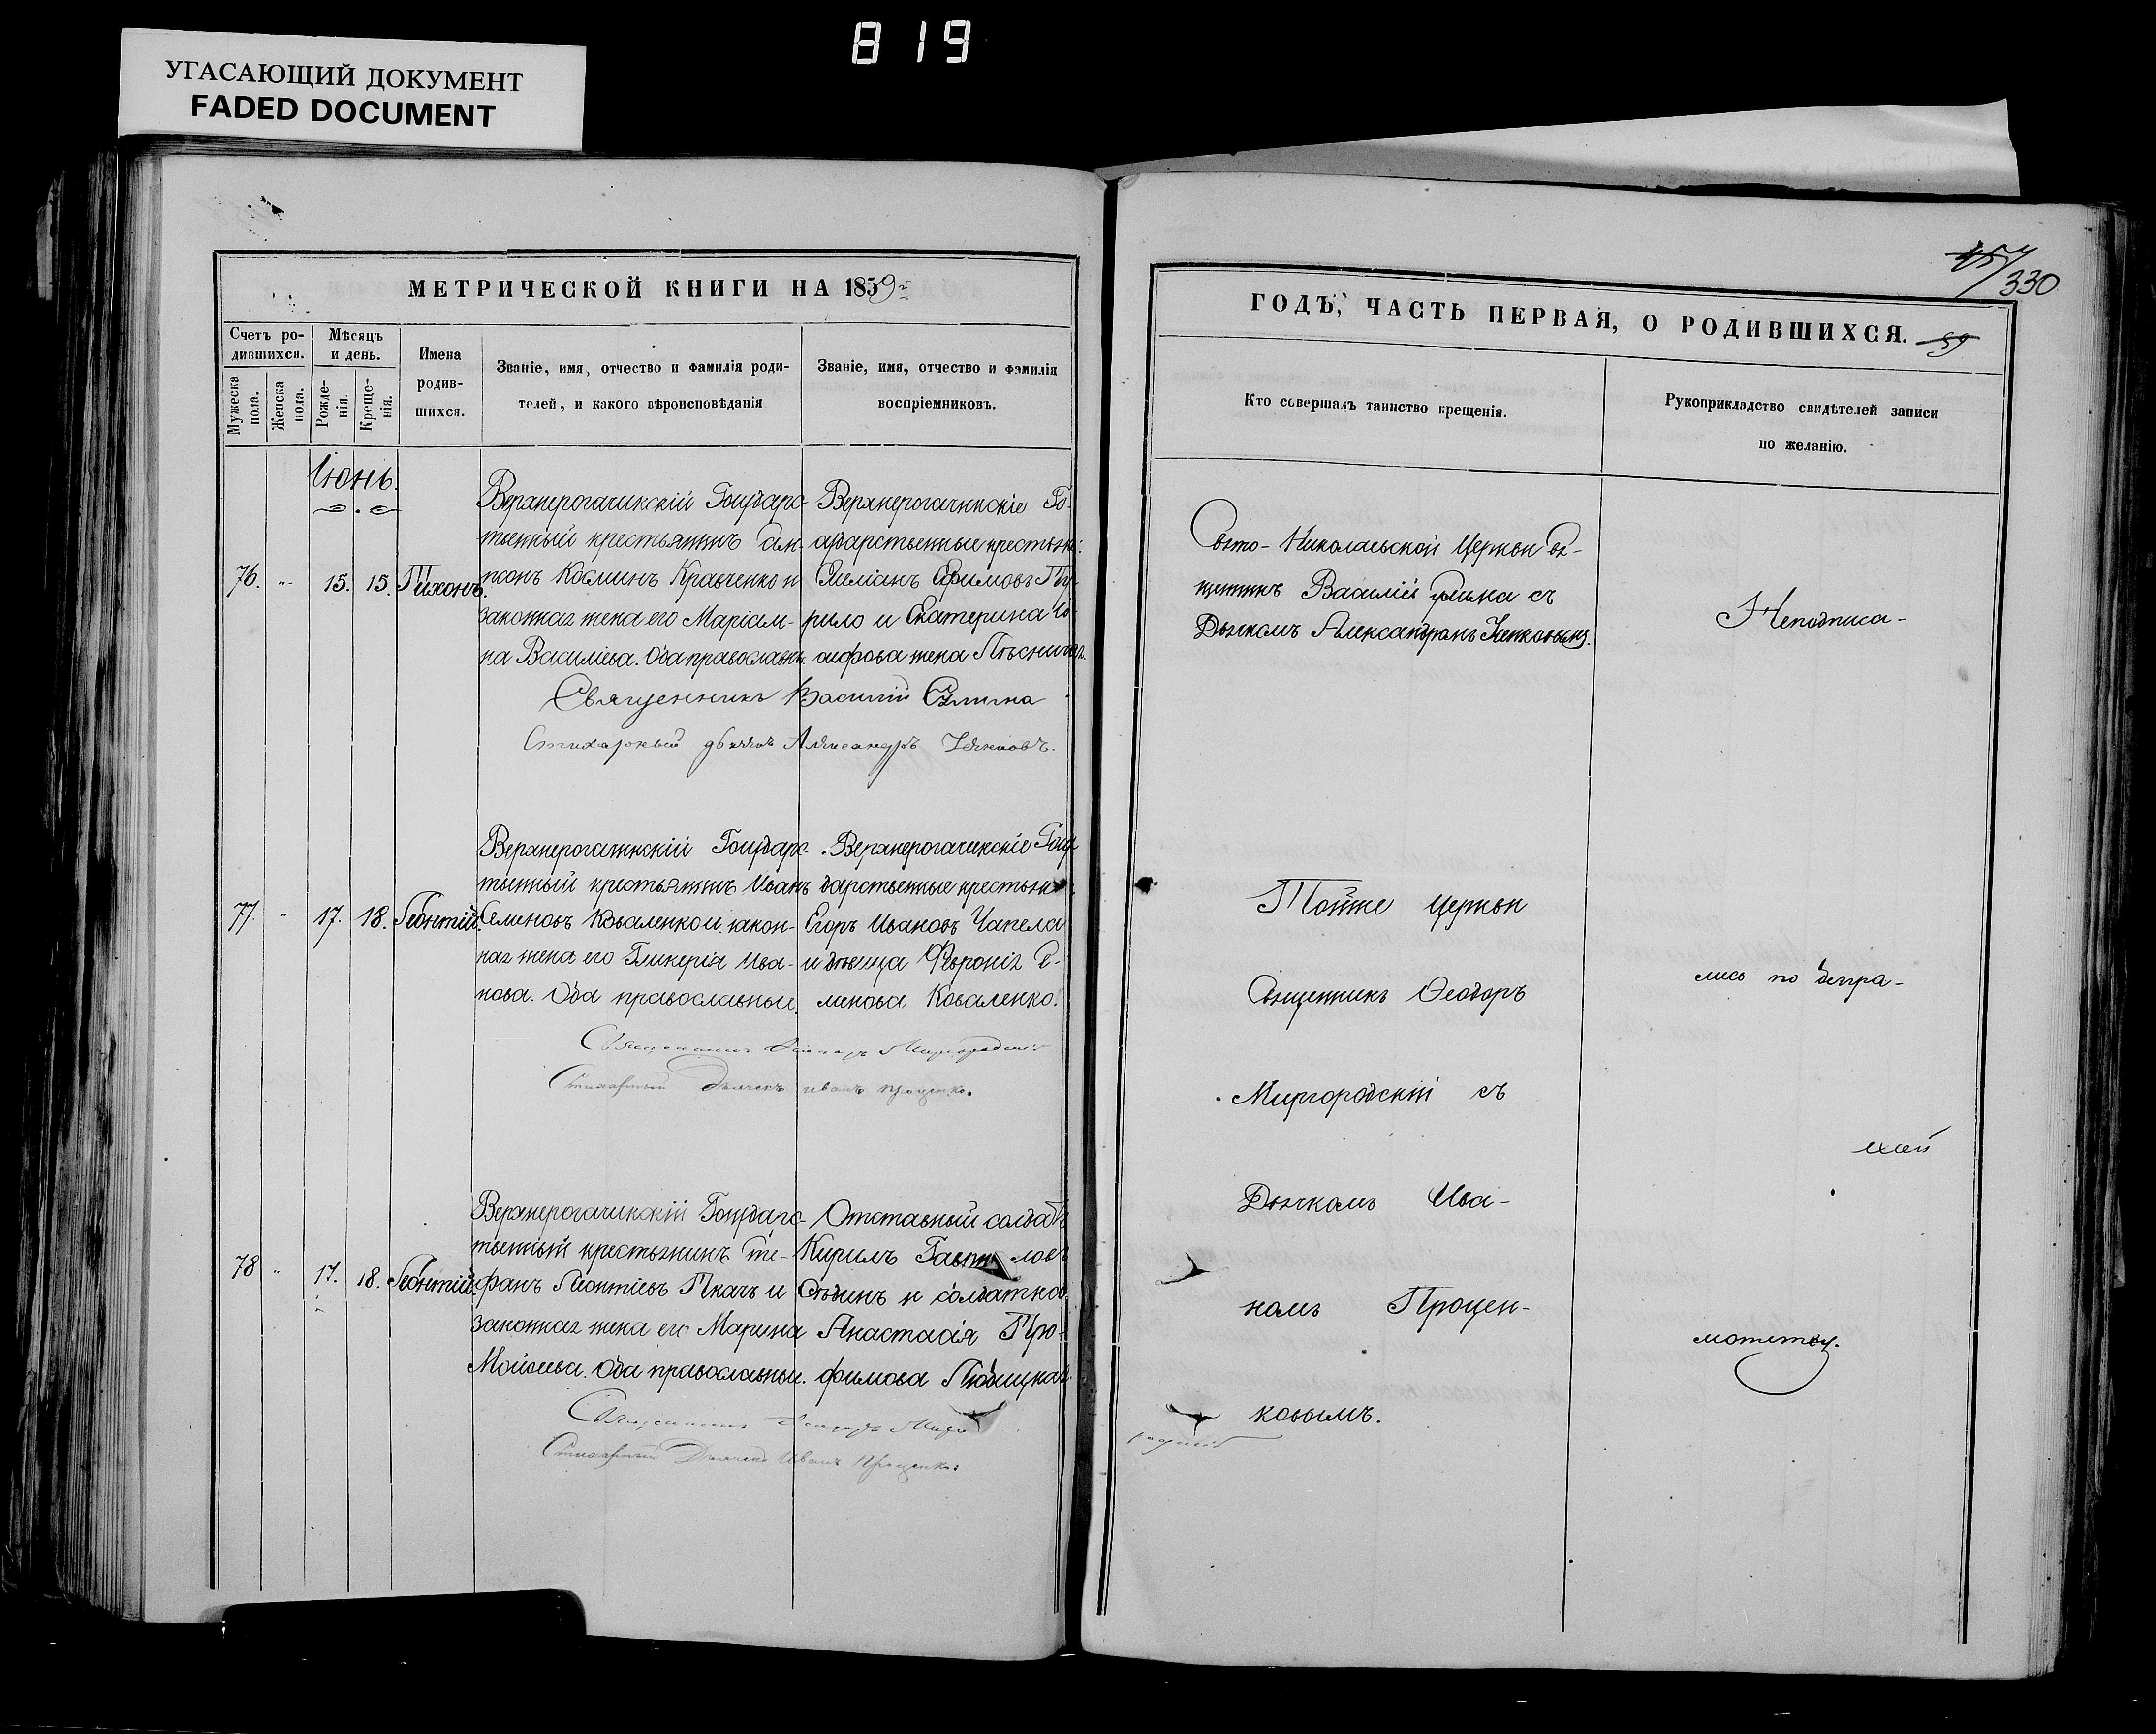 819
УГАСАЮЩИЙ ДОКУМЕНТ
FADED DOCUMENT
МЕТРИЧЕСКОЙ КНИГИ НА 1859 г
Счетъ родившихся.
Мѣсяцъ и день.
Мужеска пола.
Женска пола.
Рожденія.
Крещенія.
Имена родившихся.
Званіе, имя, отчество и фамилія роди-
телей, и какого вѣроисповѣданія
Званіе, имя, отчество и фамилія
воспріемниковъ.
Іюнь.
76. " 15. 15. Тихонъ.
Верхнерогачикскій Государс-
твенный крестьянинъ Сам-
псонъ Косминъ Кравченко и
законная жена его Маріам-
на Василіева. Оба православн.
Верхнерогачикскіе Го-
сударственные крестьян:
Емиліанъ Ефимовъ
рило и Екатерина Іо-
сифова жена Пѣсницкая.
Священникъ Василій
Стихарный дьячокъ Александръ
77. " 17. 18. Леонтій.
Верхнерогачикскій Государс-
твенный крестьянинъ Иванъ
Семеновъ Коваленко и закон-
ная жена его Гликерія Ива-
нова. Оба православныи.
Верхнерогачикскіе Госу
дарственные крестьян
Егоръ Ивановъ Чапела
и дѣвица Февронія Се-
менова Коваленко.
Священникъ Феодоръ Миргородскій
Стихарный Дьячекъ Иванъ Проценко.
78 " 17. 18. Леонтій.
Верхнерогачикскій Государс-
твенный крестьянинъ Сте-
фанъ Леонтіевъ Ткачъ и
законная жена его Марина
Мойсеева. Оба православныи.
Отставный солдатъ
Кирилъ
Сѣдинъ и солдатка
Анастасія Тро-
фимова Любицкая.
Священникъ Феодоръ Мирго
родскій
Стихарный Дьячекъ Иванъ Проценко.
457
330
ГОДЪ, ЧАСТЬ ПЕРВАЯ, О РОДИВШИХСЯ.
59
Кто совершалъ таинство крещенія.
Рукоприкладство свидѣтелей записи
по желанію.
Свято-Николаевской Церкви Свя-
щенникъ Василій с
Дьячкомъ Александромъ
Тойже Церкви
Священникъ Феодоръ
Миргородскій съ
Дьячкомъ Ива-
номъ Процен-
ковымъ.
Неподписа-
лись по безгра-